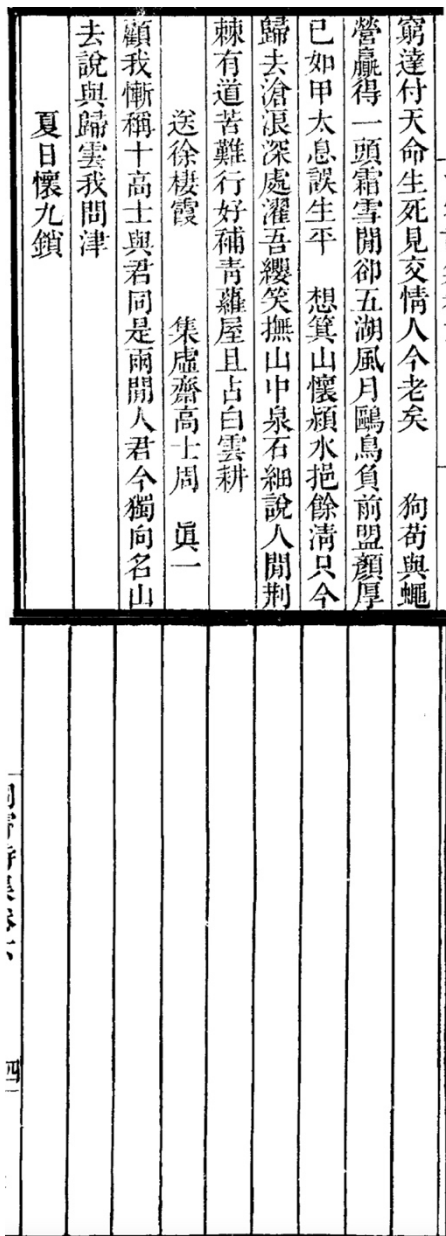 窮達付天命生死見交情人今老矣　狗苟與蠅
營贏得一頭霜雪閒卻五湖風月鷗鳥負前盟顏厚
已如甲太息誤生平　想箕山懷潁水挹餘清只今
歸去滄浪深處濯吾纓笑撫山中泉石細說人閒荆
棘有道苦難行好補青蘿屋且占白雲耕
送徐棲霞　集虛齋高士周　眞一
顧我慚稱十高士與君同是兩閒人君今獨向名山
去說與歸雲我問津
夏日懷九鎖
四